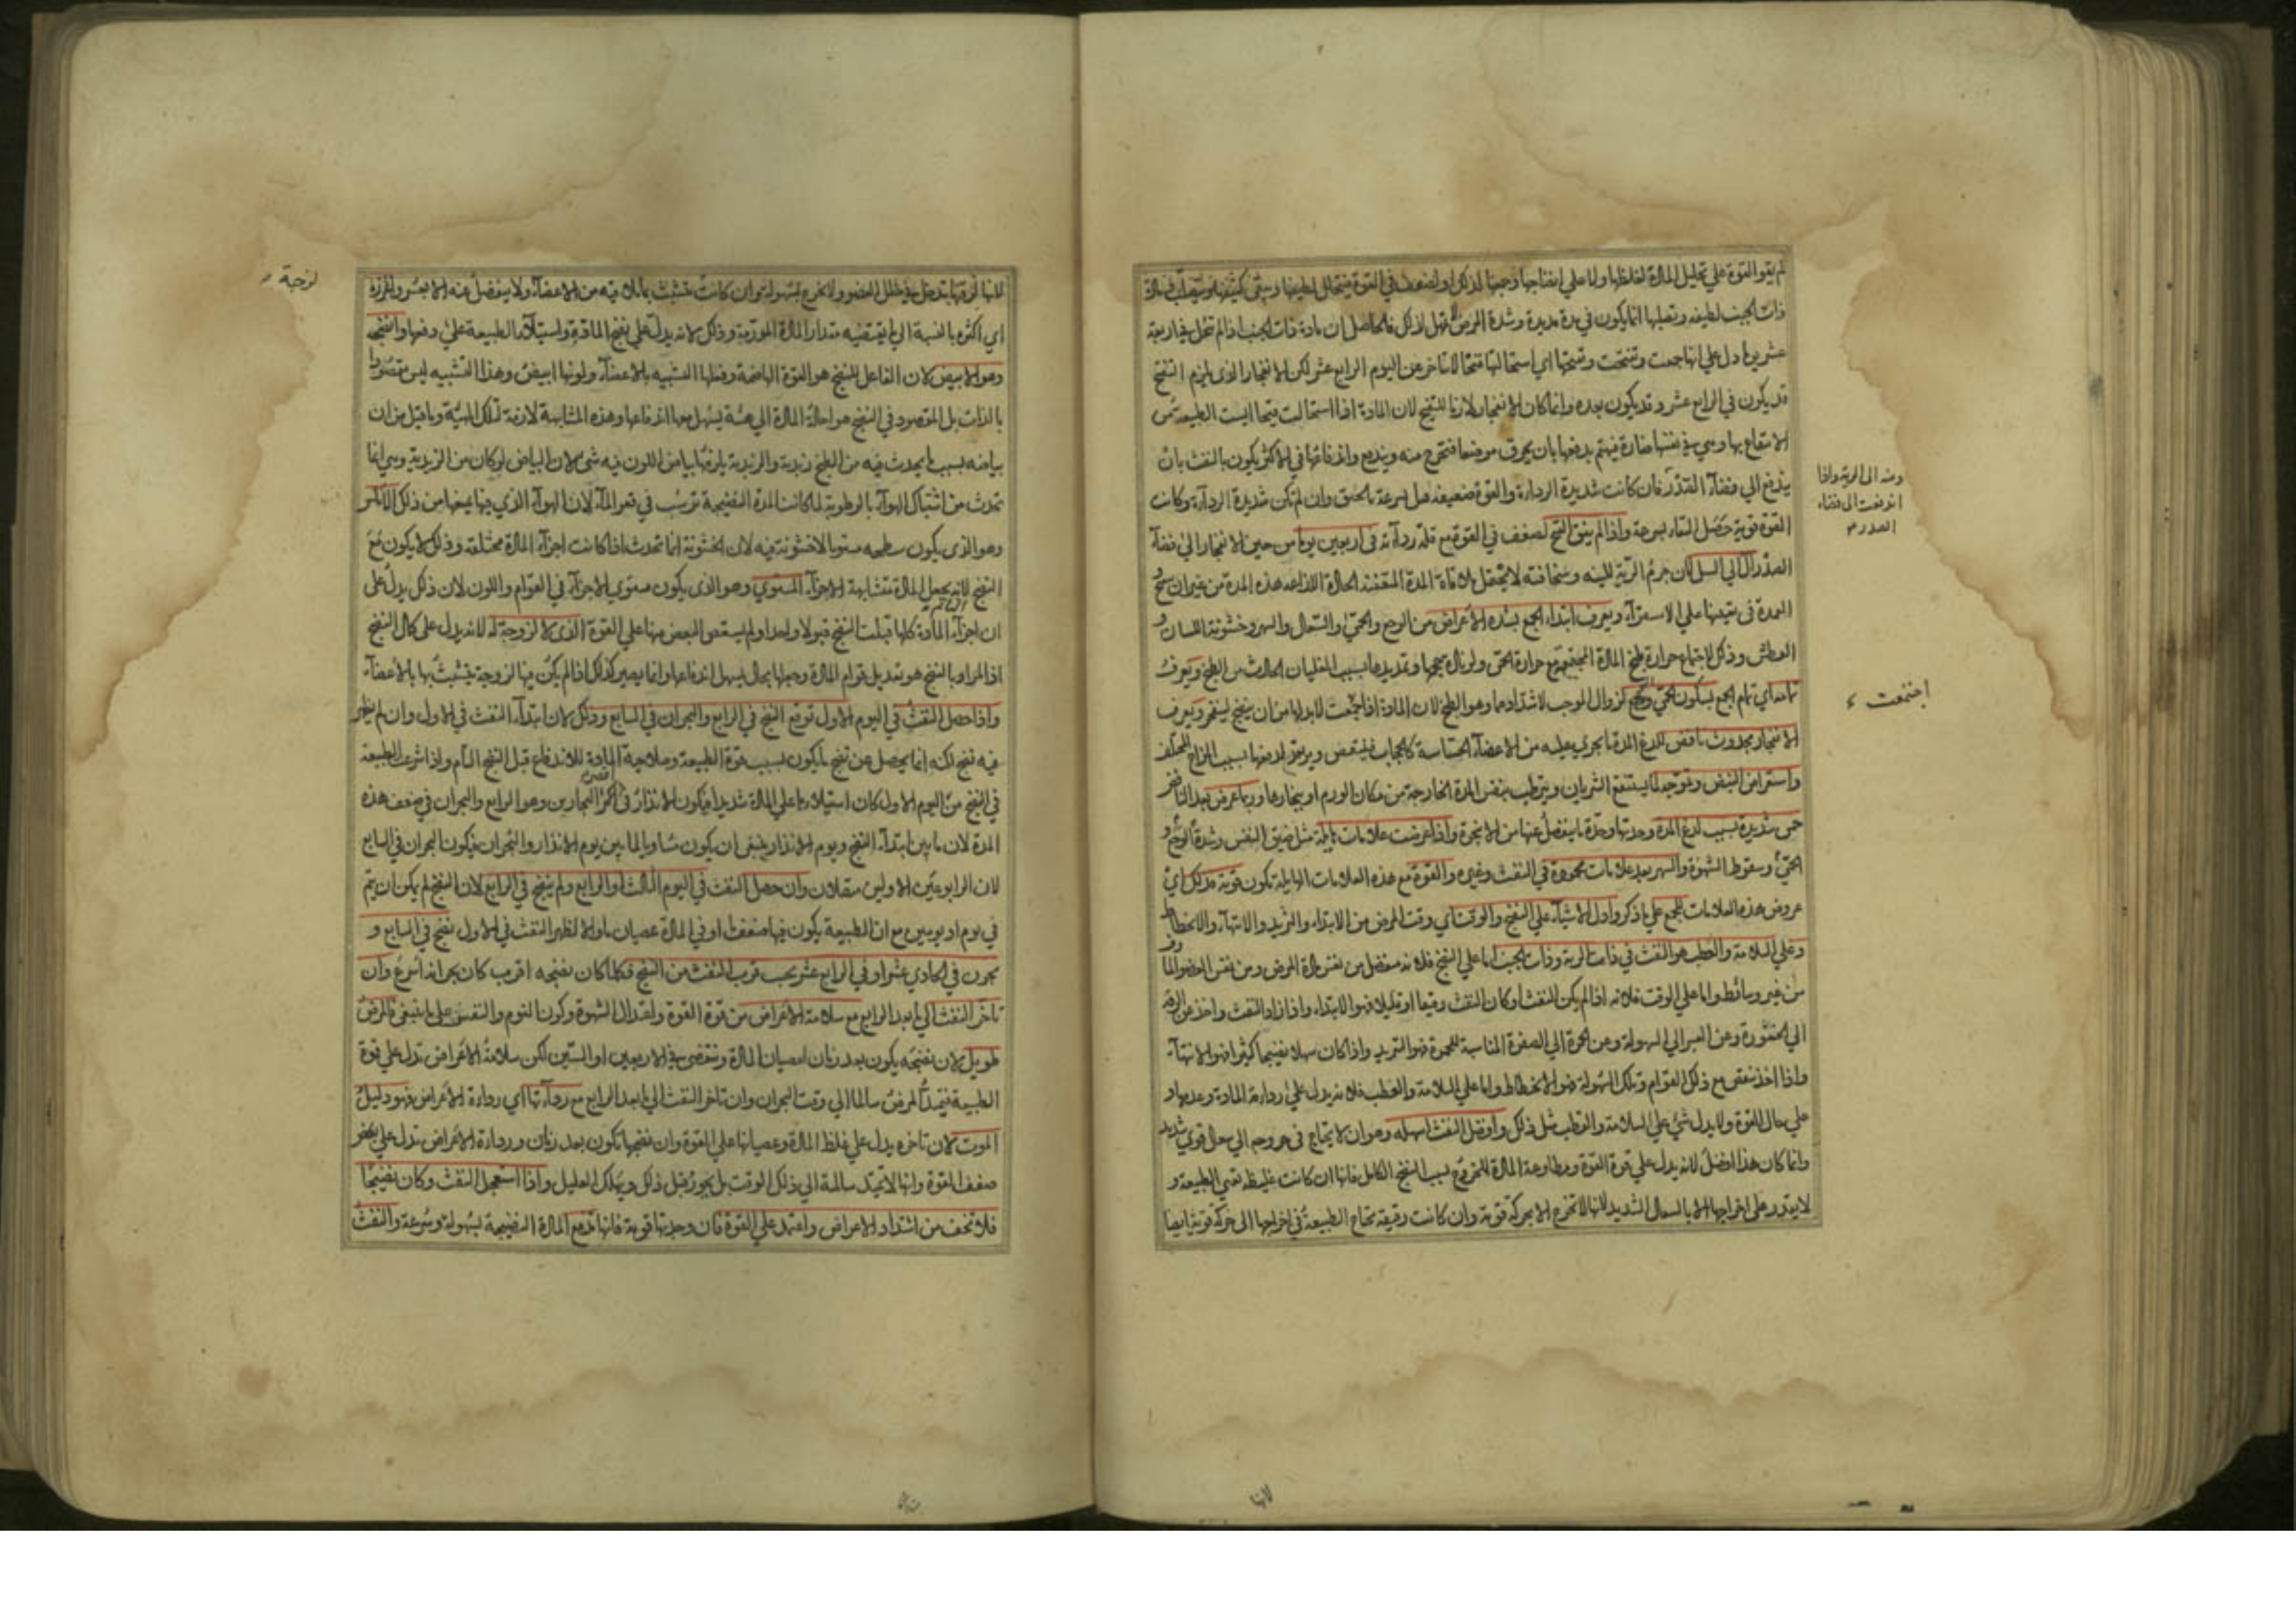 لم يقو القوة على تحليل المادة لغلظها ولا على انضاجها وجمعها لذلك او لضعف في القوة فيتحلل لطيفها ويبقى كثيفها
ذات الجنب لطيفه وتصلبها انما يكون في مدة مديدة وشدة المرض لذلك فالحاصل ان مادة ذات الجنب اذا لم تنحل في اربعة
عشر يوما دل على انها جمعت وتقيحت وتقيحها اي استحالتها قيحا لا يتاخر عن اليوم الرابع عشر لكن الانفجار الذي يلزم التقيح
قد يكون في الرابع عشر وقد يكون بعده وانما كان الانفجار لازما للتقيح لان المادة اذا استحالت قيحا ايست الطبيعة من
الانتفاع بها وهي في نفسها ضارة فيهتم بدفعها بان يحرق موضعا فتخرج منه ويندفع واندفاعها في الاكثر يكون بالنفث بان
يندفع الى فضاء الصدر فان كانت شديدة الرداءة والقوة ضعيفة قتل بسرعة بالخنق وان لم تكن شديدة الرداءة وكانت
القوة قوية حصل النقاء بسرعة واذا لم ينق القيح لضعف في القوة مع قلة رداءته في اربعين يوما من حين الانفجار الى فضاء
الصدر آل الى السل لان جرم الرية للينه وسخافته لا يحتمل ملاقاة المدة المتعفنة الحادة اللذاعة هذه المدة من غير ان
ويعرف ابتداء الجمع بشدة الاعراض من الوجع والحمى والسعال والسهر وخشونة اللسان و
العطش وذلك لاجتماع حرارة طبخ المادة المجتمعة مع حرارة الحمى ولزيادة حجمها وتمديدها بسبب الغليان الحادث من الطبخ ويعرف
تمامه اي تمام الجمع بسكون الحمى والوجع لزوال الموجب لاشتدادهما وهو الطبخ لان المادة اذا اجتمعت لا بد لها من ان ينضج لينفجر ويعرف
الانفجار بحدوث نافض للذع المدة ما يجري عليه من الاعضاء الحساسة كالحجاب فينتفض ويرتعد لدفعها بسبب المزاج المختلف
واستعراض النبض وتموجه لما يستنقع الشريان ويترطب بنفس المدة الخارجة من مكان الورم او ببخارها وربما عرض بعد النافض
حمى شديدة بسبب لذع المدة وحدتها وحدة ما ينفصل عنها من الابخرة واذا عرضت علامات هايلة مثل ضيق النفس وشدة الوجع و
الحمى وسقوط الشهوة والسهر بعد علامات محمودة في النفث وغيره والقوة مع هذه العلامات الهايلة تكون قوية فذلك اي
عروض هذه العلامات للجمع على ما ذكر وادل الاشياء على النضج والوقت اي وقت المرض من الابتداء والتزيد والانتهاء والانحطاط
وعلى السلامة والعطب هو النفث في ذات الرية وذات الجنب اما على النضج فلانه منفصل من نفس مادة المرض ومن نفس العضو الماوف
من غير وسائط واما على الوقت فلانه اذا لم يكن النفث او كان النفث رقيقا او قليلا فهو الابتداء واذا زاد النفث واخذ من الرقة
الى الخثورة ومن العسر الى السهولة ومن الحمرة الى الصفرة المناسبة للحمرة فهو التزيد واذا كان سهلا نضيجا كثيرا فهو الانتهاء
واذا اخذ ينقص مع ذلك القوام وتلك السهولة فهو الانحطاط واما على السلامة والعطب فلانه يدل على رداءة المادة وعدمها و
على حال القوة ولا يدل شئ على السلامة والعطب مثل ذلك وافضل النفث اسهله وهو ان لا يحتاج في خروجه الى سعال قوي شديد
وانما كان هذا افضل لانه يدل على قوة القوة ومطاوعة المادة للخروج بسبب النضج الكامل فانها ان كانت غليظة تعيي الطبيعة و
لا يقدر على اخراجها الا بالسعال الشديد لانها لا تخرج الا بحركة قوية وان كانت رقيقة تحتاج الطبيعة في اخراجها الى حركة قوية ايضا
ومنه الى الرية واذا
اندفعت الى فضاء
الصدر
اجتمعت
لانها
لزجة
لانها لرقتها تدخل في خلل العضو ولا تخرج بسهولة وان كانت تتشبث بما تلاقيه من الاعضاء ولا ينفصل عنه الا بعسر
اي اكثره بالنسبة الى ما يقتضيه مقدار المادة المورمة وذلك لانه يدل على نضج المادة واستيلاء الطبيعة على دفعها وانضجه
وهو الابيض لان الفاعل للنضج هو القوة الهاضمة وفعلها التشبيه بالاعضاء ولونها ابيض وهذا التشبيه ليس مقصودا
بالذات بل المقصود في النضج هو احالة المادة الى هيئة يسهل معها اندفاعها وهذه المشابهة لازمة لتلك الهيئة وما قيل من ان
بياضه بسبب ما يحدث فيه من الطبخ زبدية والزبدية يلزمها بياض اللون فيه شئ لان البياض لو كان من الزبدية وهي انما
تحدث من اشتباك الهواء بالرطوبة لما كانت المدة النضيجة ترسب في قعر الماء لان الهواء الذي فيها يمنعها من ذلك الاملس
وهو الذي يكون سطحه مستويا لا خشونة فيه لان الخشونة انما تحدث اذا كانت اجزاء المادة مختلفة وذلك لا يكون مع
النضج لانه يجعل المادة متشابهة الاجزاء المستوي وهو الذي يكون مستوي الاجزاء في القوام واللون لان ذلك يدل على
ان اجزاء المادة كلها قبلت النضج قبولا واحدا ولم يستعص البعض منها على القوة الذي لا لزوجة له لانه يدل على كمال النضج
اذ المراد بالنضج هو تعديل قوام المادة وجعلها بحال يسهل اندفاعها وانما يصير كذلك اذا لم يكن فيها لزوجة يتشبث بها بالاعضاء
واذا حصل النفث في اليوم الاول توقع النضج في الرابع والبحران في السابع وذلك لان ابتداء النفث في الاول وان لم يظهر
فيه نضج لكنه انما يحصل عن نضج ما يكون بسبب قوة الطبيعة وصلاحية المادة للاندفاع قبل النضج التام واذا شرعت الطبيعة
في النضج من اليوم الاول كان استيلاؤها على المادة شديدا فيكون الانذار في اقصر البحارين وهو الرابع والبحران في ضعف هذه
المدة لان ما بين ابتداء النضج ويوم الانذار ينبغي ان يكون مساويا لما بين يوم الانذار والبحران فيكون البحران في السابع
لان الرابوعين الاولين متصلان وان حصل النفث في اليوم الثالث او الرابع ولم ينضج في الرابع لان النضج لم يكن ان يتم
في يوم او يومين مع ان الطبيعة يكون فيها ضعف او في المادة عصيان ما والا لظهر النفث في الاول نضج في السابع و
بحرن في الحادي عشر او في الرابع عشر بحسب قرب النفث من النضج فكلما كان نضجه اقرب كان بحرانه اسرع وان
تاخر النفث الى ما بعد الرابع مع سلامة الاعراض من قوة القوة واعتدال الشهوة وكون النوم والنفس على ما ينبغي فالمرض
طويل لان نضجه يكون بعد زمان لعصيان المادة وينقضي في الاربعين او الستين لكن سلامة الاعراض تدل على قوة
الطبيعة فيمتد المرض سالما الى وقت البحران وان تاخر النفث الى ما بعد الرابع مع رداءتها اي رداءة الاعراض فهو دليل
الموت لان تاخره يدل على غلظ المادة وعصيانها على القوة وان نضجها يكون بعد زمان ورداءة الاعراض تدل على
ضعف القوة وانها لا تمتد سالمة الى ذلك الوقت بل يخور قبل ذلك ويهلك العليل واذا استعجل النفث وكان نضيجا
فلا تخف من اشتداد الاعراض واعتمد على القوة فان وجدتها قوية فانها تدفع المادة النضيجة بسهولة وسرعة والنفث